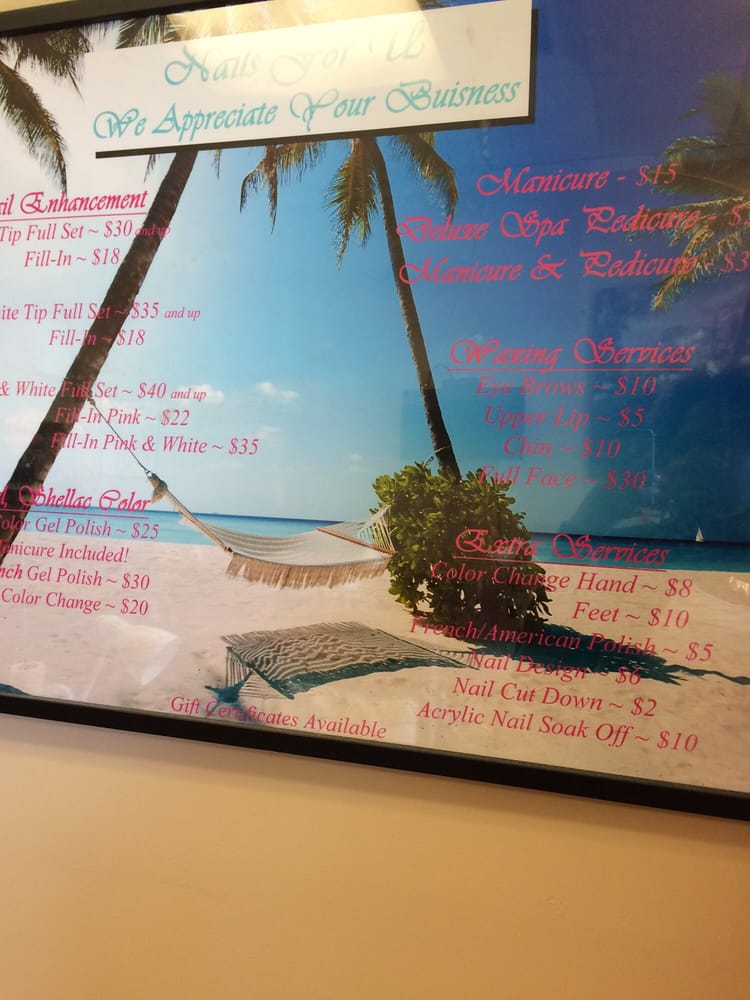 Nails For U
We Appreciate Your Buisness
Enhancement
Tip Full Set ~ $30 and up
Fill-In ~ $18
Tip Full Set ~ $35 and up
Fill-In ~ $18
& White Full Set ~ $40 and up
Fill-In Pink ~ $22
Fill-In Pink & White ~ $35
Shellac Color
Gel Polish ~ $25
Included!
Gel Polish ~ $30
Color Change ~ $20
Gift Certificates Available
Manicure - $15
Deluxe Spa Pedicure -
Manicure & Pedicure -
Waxing Services
Eye Brows ~ $10
Upper Lip ~ $5
Chin ~ $10
Full Face ~ $30
Extra Services
Color Change Hand ~ $8
Feet ~ $10
French/American Polish ~ $5
Nail Design ~ $6
Nail Cut Down ~ $2
Acrylic Nail Soak Off ~ $10